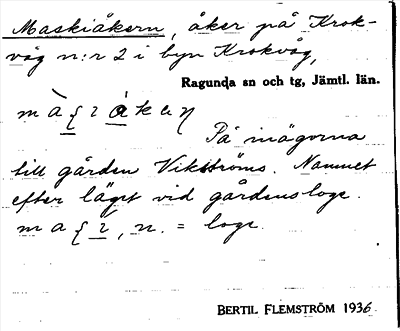 Maskiåkern, åker på Krok-
våg n:r 2 i byn Krokvåg,
Ragunda sn och tg, Jämtl. län.
På inägorna
till gården Vikströms. Namnet
efter läget vid gårdens loge.
n. = loge.
BERTIL FLEMSTRÖM 1936.